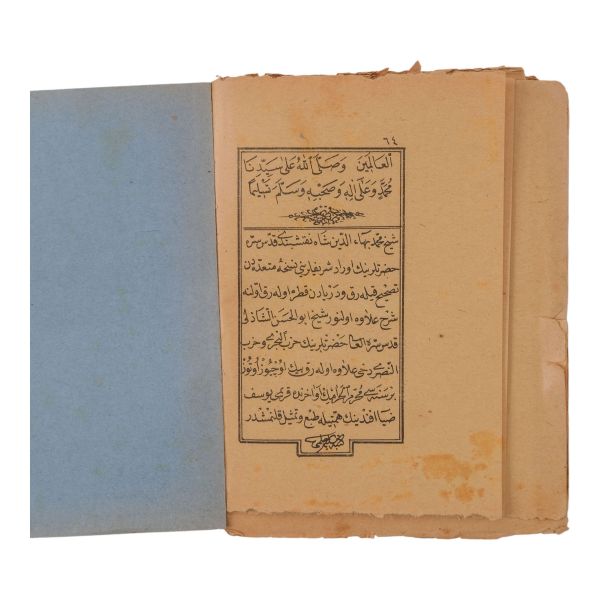 ٦٤
العالمين وصلى الله على سيدنا
محمد وعلى اله وصحبه وسلم تسليما
شيخ محمد بهاء الدين شاه نقشبندى قدس سره
حضرتلرينك اوراد شريفلرينى نسخۀ متعدده دن
تصحيح قيله رق ودر يادن قطره اوله رق اولنه
شرح علاوه اولنور شيخ ابو الحسن الشاذلى
قدس سره العا حضرتلرينك حزب البحرى وحزب
النصرى دخى علاوه اوله رق بيك اوچيوز اوتوز
بر سنه سى محرم الحرامنك اواخرنده قريمى يوسف
ضيا افندينك همتيله طبع وتمثيل قلنمشدر